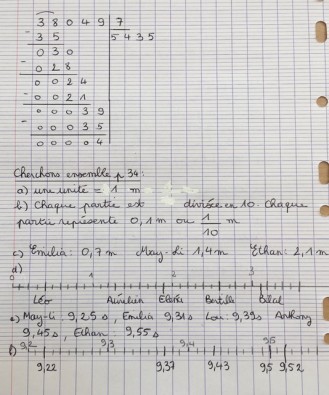 3 8 0 4 9 | 7
- 3 5 | 5 4 3 5
0 3 0
- 0 2 8
0 0 2 4
- 0 0 2 1
0 0 0 3 9
- 0 0 0 3 5
0 0 0 0 4
Cherchons ensemble p 34:
a) une unité = 1 m
b) Chaque partie est divisée en 10. Chaque
partie représente 0,1 m ou 1/10 m
c) Emilia: 0,7 m May-Li 1,4 m Ethan: 2,1 m
d)
0 1 2 3
Léo Aurélien Bertille Bilal
e) May-Li 9,25 s, Emilia 9,31 s Lou: 9,39 s Anthony
9,45 s, Ethan: 9,55 s
f) 9,2 9,3 9,4 9,5
9,22 9,37 9,43 9,5 9,52